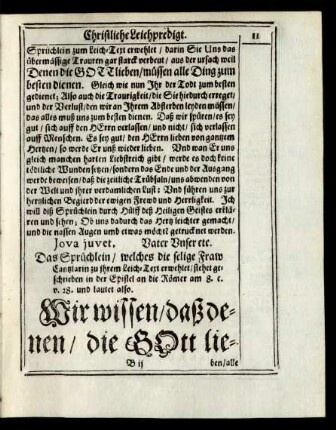 Christliche Leichpredigt. 11
Sprüchlein zum Leich-Text erwehlet / darin Sie Uns das
übermässige Trauren gar starck verbeut / aus der ursach weil
Denen die GOTT lieben / müssen alle Ding zum
besten dienen. Gleich wie nun Ihr der Todt zum besten
gedienet; Also auch die Traurigkeit / die Sie hiedurch erreget /
und der Verlust / den wir an Ihrem Absterben leyden müssen /
das alles muß uns zum besten dienen. Daß wir spüren / es sey
gut / sich auff den HErrn verlassen / und nicht / sich verlassen
auff Menschen. Es sey gut / den HErrn lieben von gantzem
Hertzen / so werde Er unß wieder lieben. Und wan Er uns
gleich manchen harten Liebstreich gibt / werde es doch keine
tödtliche Wunden setzen / sondern das Ende und der Ausgang
werde beweisen / daß die zeitliche Trübsaln / uns abwenden von
der Welt und ihrer verdamlichen Lust: Und führen uns zur
herrlichen Begierd der ewigen Frewd und Herrligkeit. Ich
will diß Sprüchlein durch Hülff deß Heiligen Geistes erklä-
ren und sehen; Ob uns dadurch das Hertz leichter gemacht /
und die nassen Augen umb etwas möcht getrucknet werden.
Jova juvet. Vater Unser etc.
Das Sprüchlein / welches die selige Fraw
Cantzlarin zu ihrem Leich-Text erwehlet / stehet ge-
schrieben in der Epistel an die Römer am 8. c.
v. 28. und lautet also.
Wir wissen / daß de-
nen / die GOtt lie-
B ij ben / alle